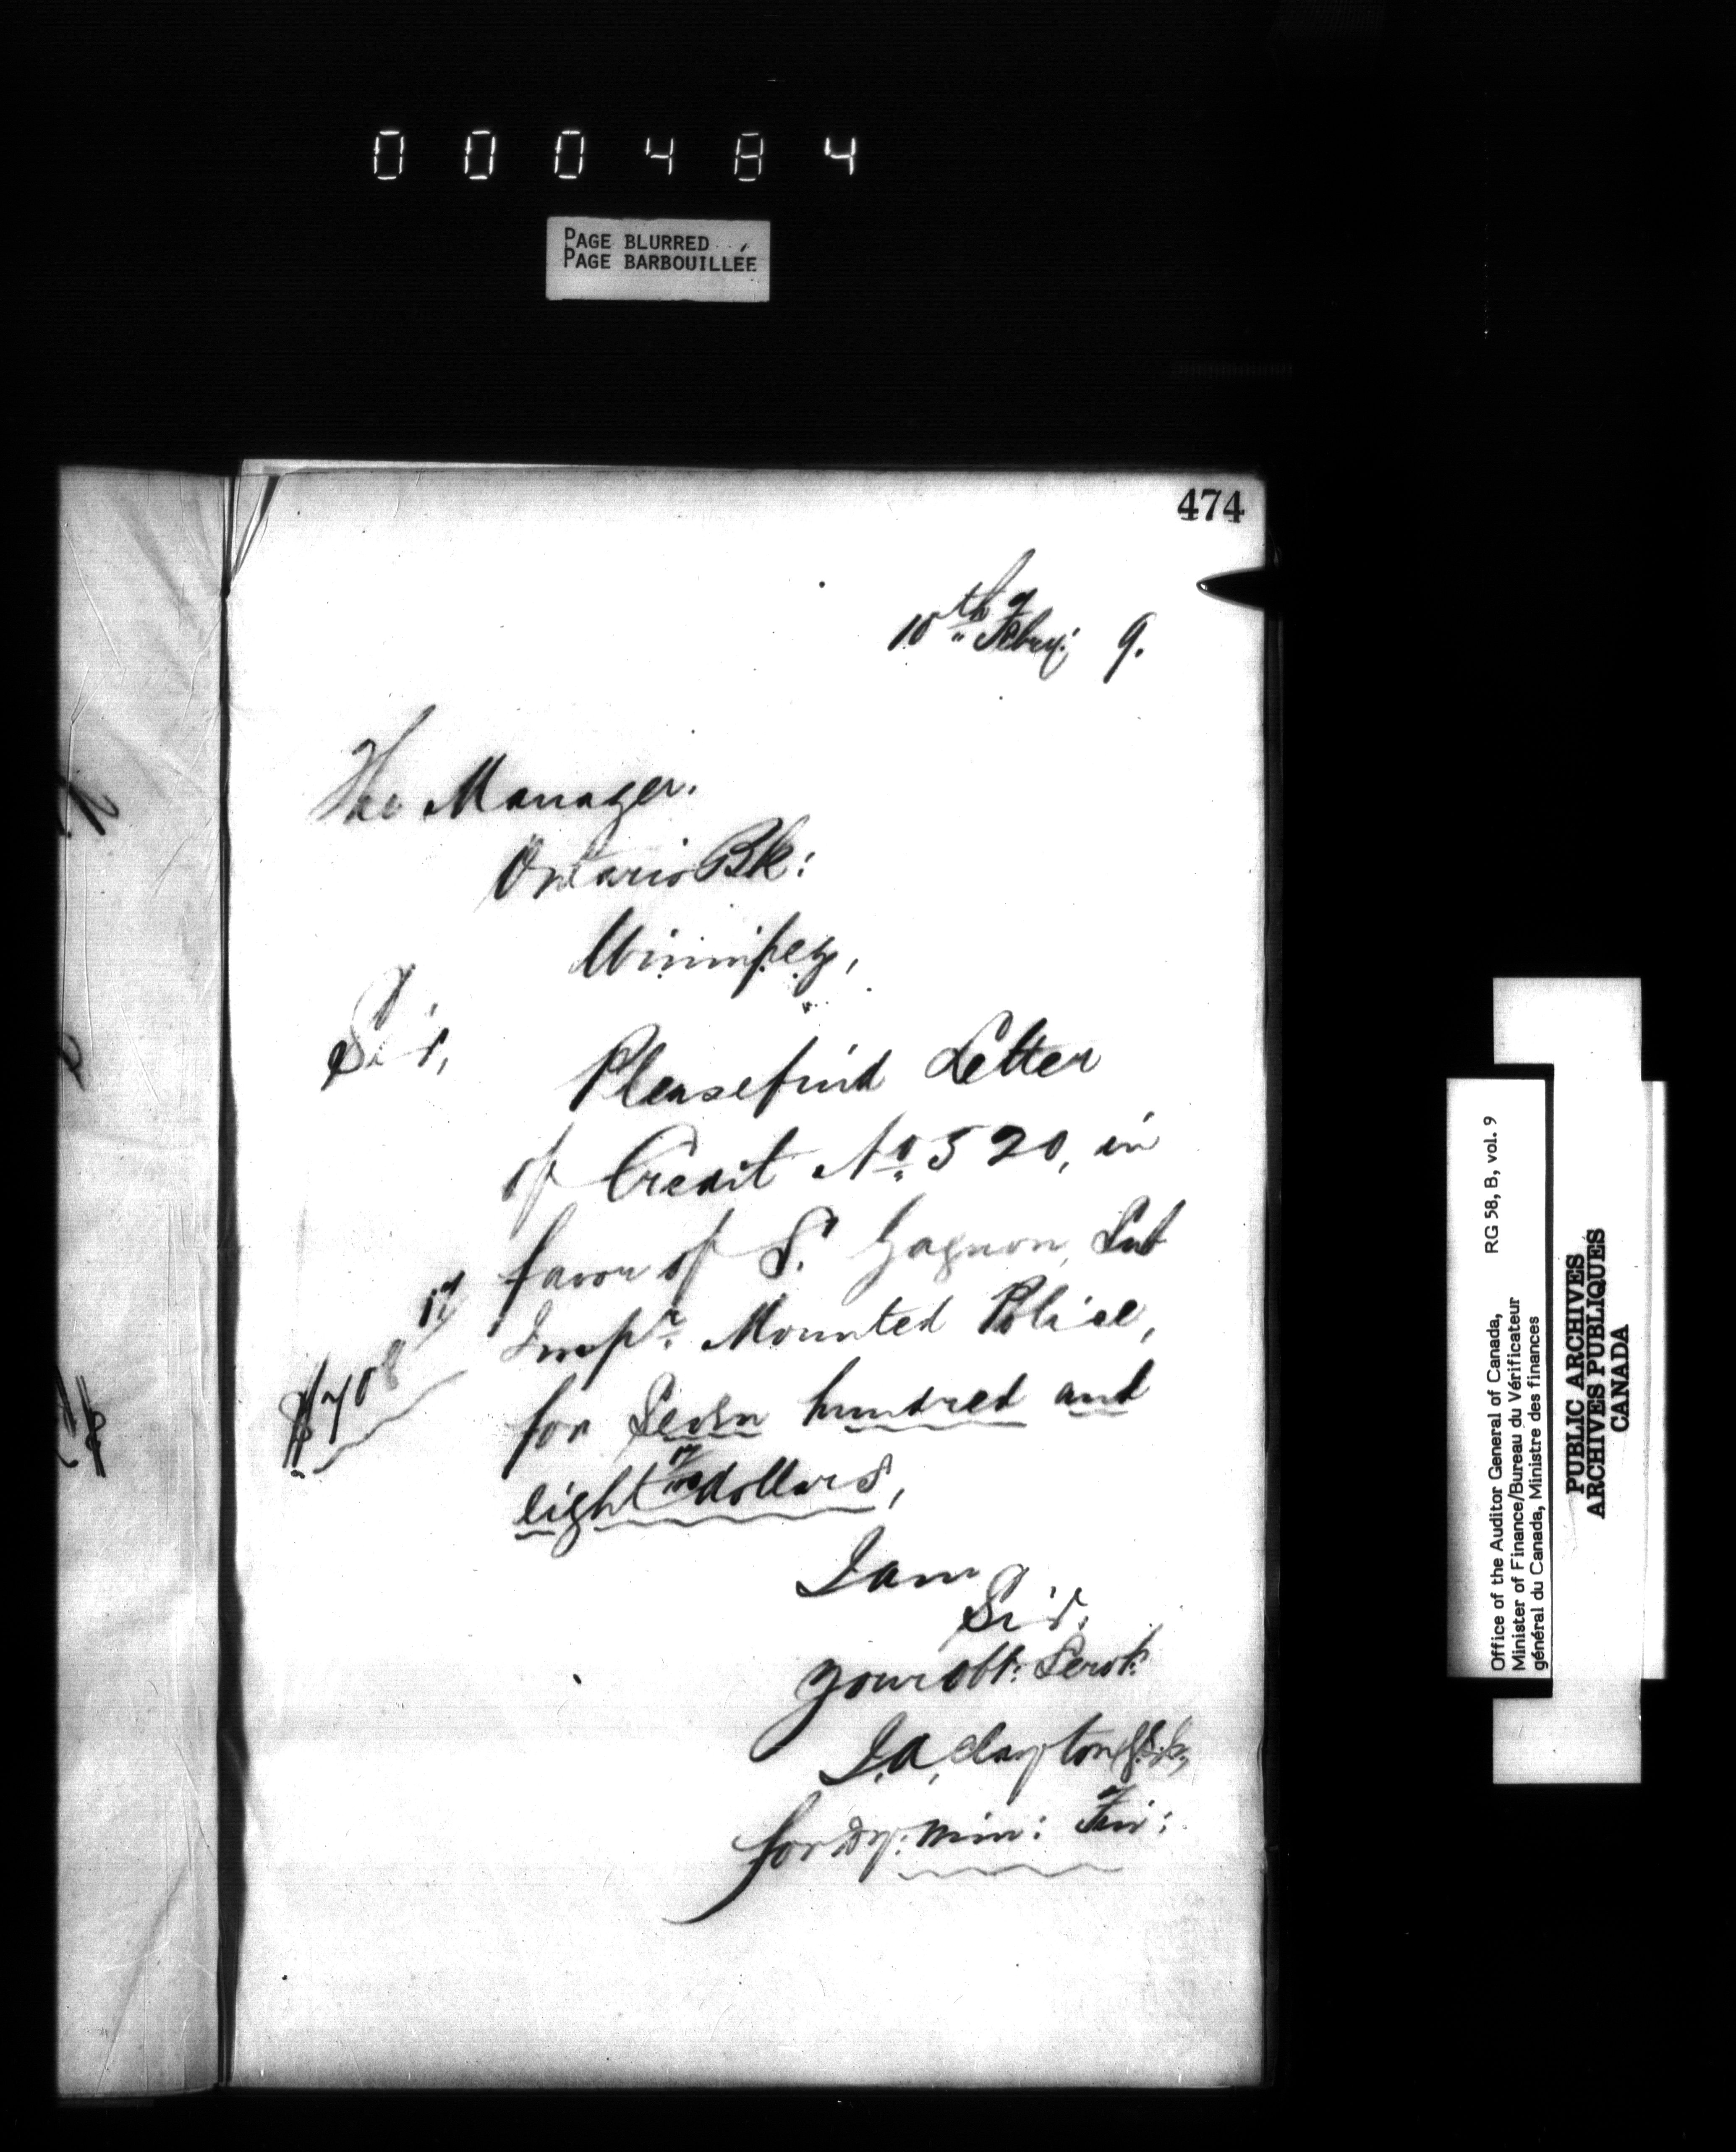 000484
PAGE BLURRED
PAGE BARBOUILLÉE
474
10th Febry: 9.
The Manager.
Ontario Bk:
Winnipeg,
Sir,
Please find Letter
of Credit No 520, in
favor of S. Gagnon, Sub
Inspr. Mounted Police,
$708 17
for Seven hundred and
eight 17/100 dollars,
I am
Sir.
your obt: Servt:
J.A. Clayton
for Dy: Min: Fin:
Office of the Auditor General of Canada, RG 58, B, vol. 9
Minister of Finance/Bureau du Vérificateur
général du Canada, Ministre des finances
PUBLIC ARCHIVES
ARCHIVES PUBLIQUES
CANADA